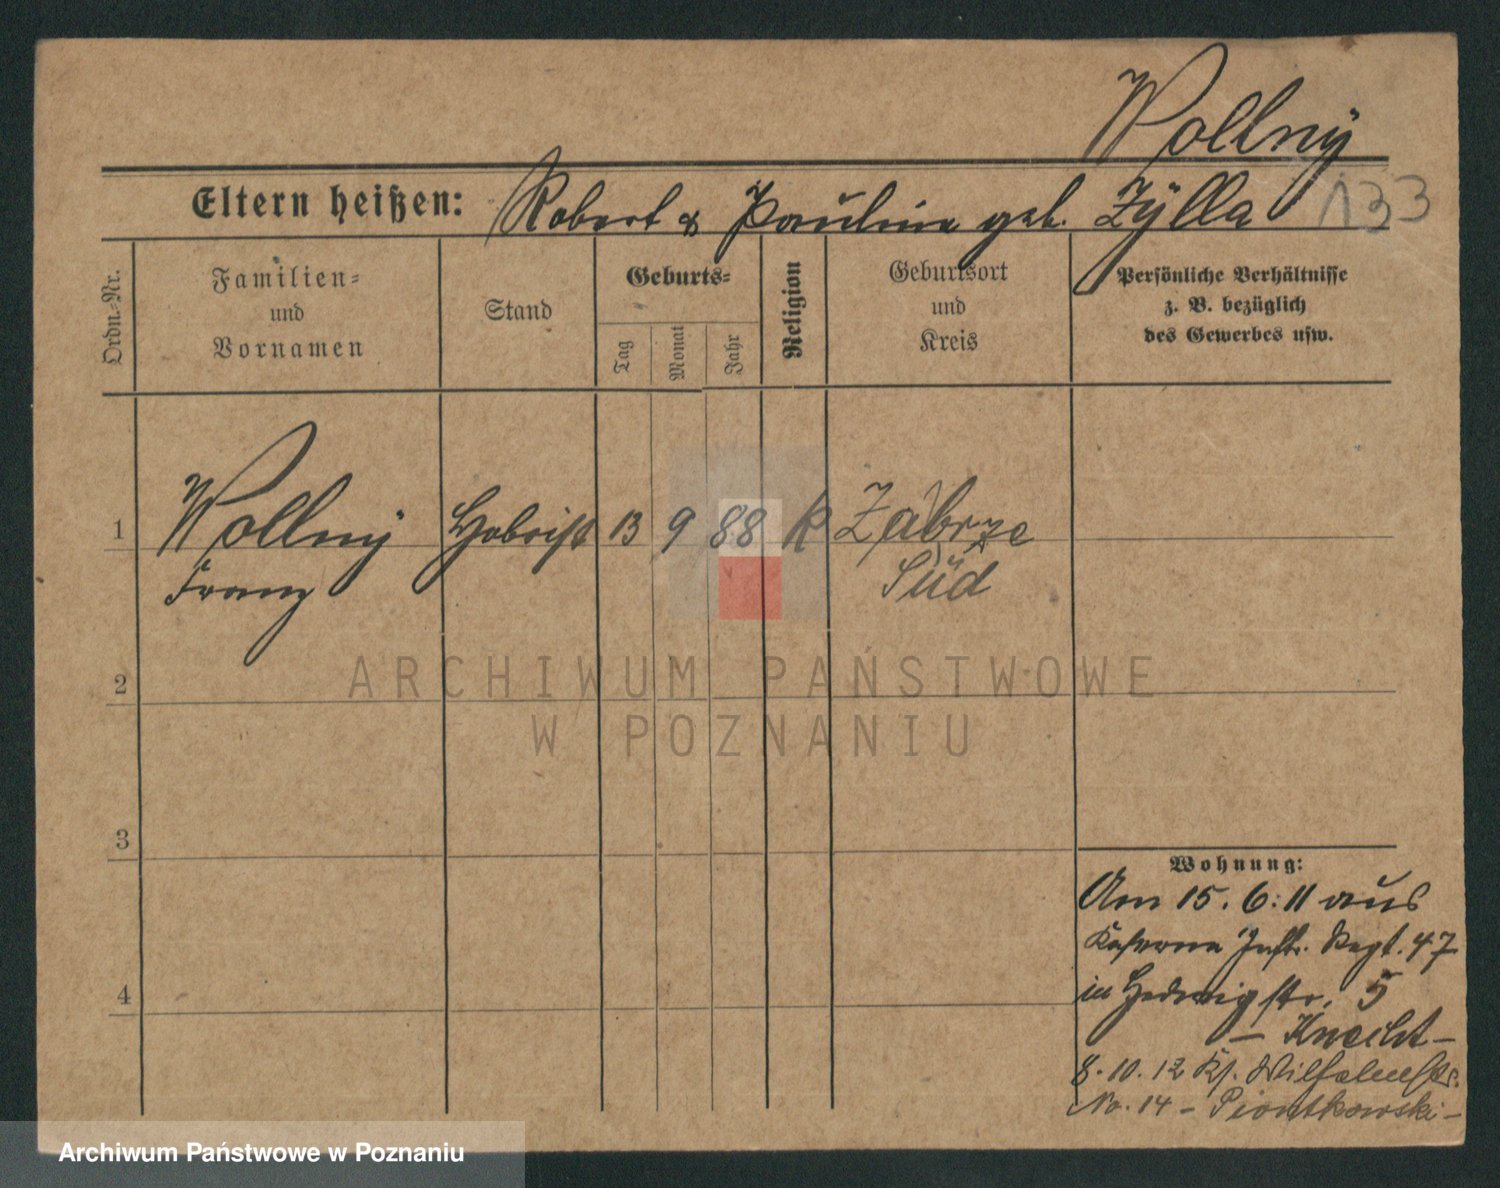 Wollny
Eltern heißen: Robert & Pauline geb. Zylla 133
Ordn.=Nr.
Familien=
und
Vornamen
Stand
Geburts=
Tag Monat Jahr
Religion
Geburtsort
und
Kreis
Persönliche Verhältnisse
z. B. bezüglich
des Gewerbes usw.
1 Wollny 13 9 88 K Zabrze
Franz Süd
2
3
4
Wohnung:
Am 15. 6. 11 aus
Kaserne Inftr. Regt. 47
in Hedwigstr. 5
– Knecht –
8. 10. 12 Kl. Wilhelmstr.
No. 14 – Piontkowski –
ARCHIWUM PAŃSTWOWE
W POZNANIU
Archiwum Państwowe w Poznaniu